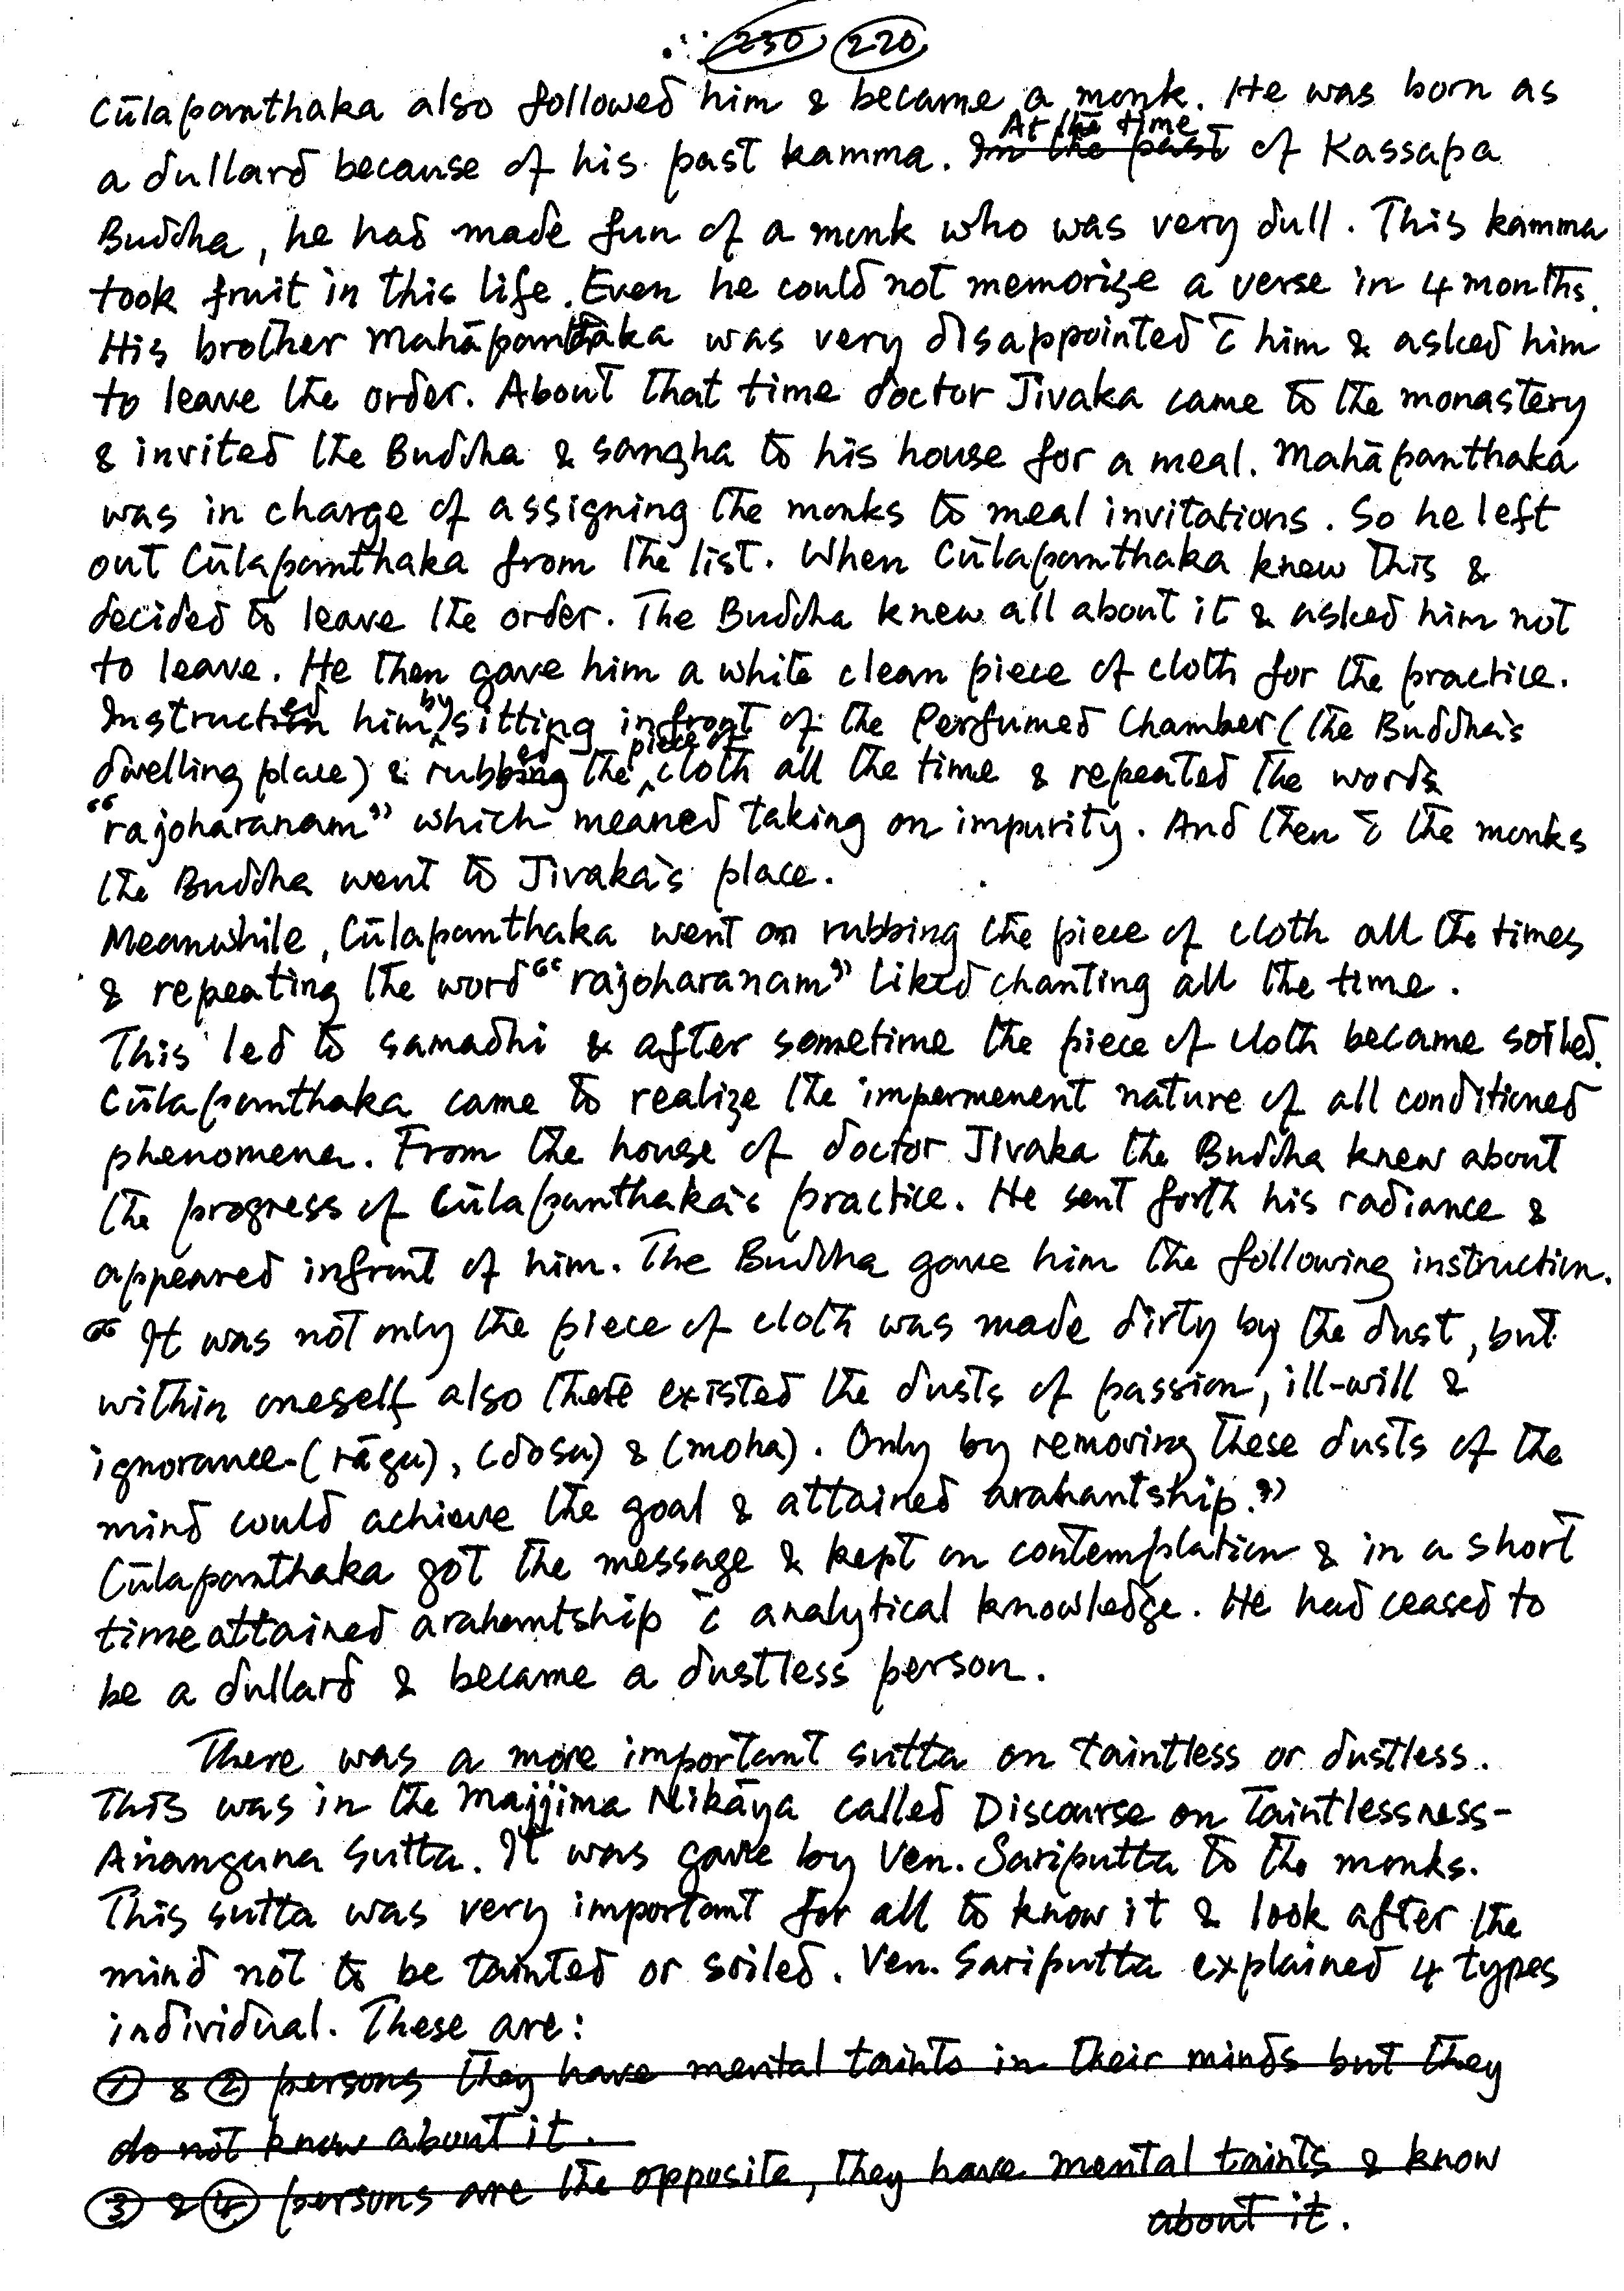 ∴ ~~230~~ 220
Cūlapanthaka also followed him & became a monk. He was born as
a dullard because of his past kamma. ~~In the past~~ At the time of Kassapa
Buddha, he had made fun of a monk who was very dull. This kamma
took fruit in this life. Even he could not memorize a verse in 4 months.
His brother Mahāpanthaka was very disappointed c̄ him & asked him
to leave the order. About that time doctor Jivaka came to the monastery
& invited the Buddha & sangha to his house for a meal. Mahāpanthaka
was in charge of assigning the monks to meal invitations. So he left
out Cūlapanthaka from the list. When Cūlapanthaka knew this &
decided to leave the order. The Buddha knew all about it & asked him not
to leave. He then gave him a white clean piece of cloth for the practice.
Instructed him, by sitting infront of the Perfumed Chamber (the Buddha's
dwelling place) & rubbed the piece of cloth all the time & repeated the words
"rajoharanam" which meaned taking on impurity. And then c̄ the monks
the Buddha went to Jivaka's place.
Meanwhile, Cūlapanthaka went on rubbing the piece of cloth all the times
& repeating the word "rajoharanam" liked chanting all the time.
This led to samadhi & after sometime the piece of cloth became soiled.
Cūlapanthaka came to realize the impermenent nature of all conditioned
phenomena. From the house of doctor Jivaka the Buddha knew about
the progress of Cūlapanthaka's practice. He sent forth his radiance &
appeared infront of him. The Buddha gave him the following instruction.
"It was not only the piece of cloth was made dirty by the dust, but
within oneself also there existed the dusts of passion, ill-will &
ignorance-(rāga), (dosa) & (moha). Only by removing these dusts of the
mind could achieve the goal & attained arahantship."
Cūlapanthaka got the message & kept on contemplation & in a short
time attained arahantship c̄ analytical knowledge. He had ceased to
be a dullard & became a dustless person.
There was a more important sutta on taintless or dustless.
This was in the Majjima Nikāya called Discourse on Taintlessness-
Anangana Sutta. It was gave by Ven. Sariputta to the monks.
This sutta was very important for all to know it & look after the
mind not to be tainted or soiled. Ven. Sariputta explained 4 types
individual. These are:
~~① & ② persons they have mental taints in their minds but they~~
~~do not know about it.~~
~~③ & ④ persons are the opposite, they have mental taints & know~~
~~about it.~~